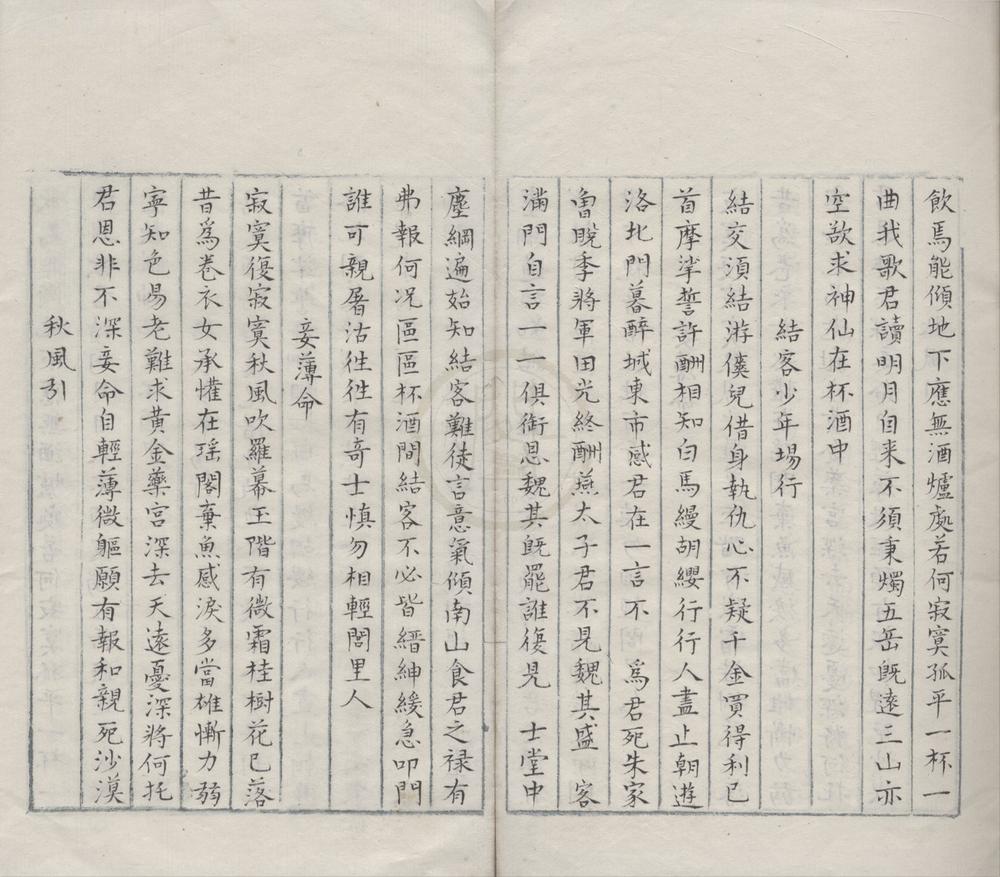 飲馬能傾地下應無酒爐處若何寂寞孤平一杯一
曲我歌君讀明月自来不須秉燭五岳既遠三山亦
空欲求神仙在杯酒中
結客少年場行
結交須結游俠兒借身執仇心不疑千金買得利匕
首摩挲誓許酬相知白馬縵胡纓行行人盡止朝遊
洛北門暮醉城東市感君在一言不 爲君死朱家
魯脫季將軍田光終酬燕太子君不見魏其盛 客
滿門自言一一俱銜恩魏其既罷誰復見 士堂中
塵網遍始知結客難徒言意氣傾南山食君之禄有
弗報何况區區杯酒間結客不必皆縉紳緩急叩門
誰可親屠沽徃徃有奇士慎勿相輕閭里人
妾薄命
寂寞復寂寞秋風吹羅幕玉階有微霜桂樹花已落
昔爲卷衣女承懽在瑶閣棄魚感淚多當雄慚力弱
寧知色易老難求黄金藥宮深去天遠憂深將何托
君恩非不深妾命自輕薄微軀願有報和親死沙漠
秋風引